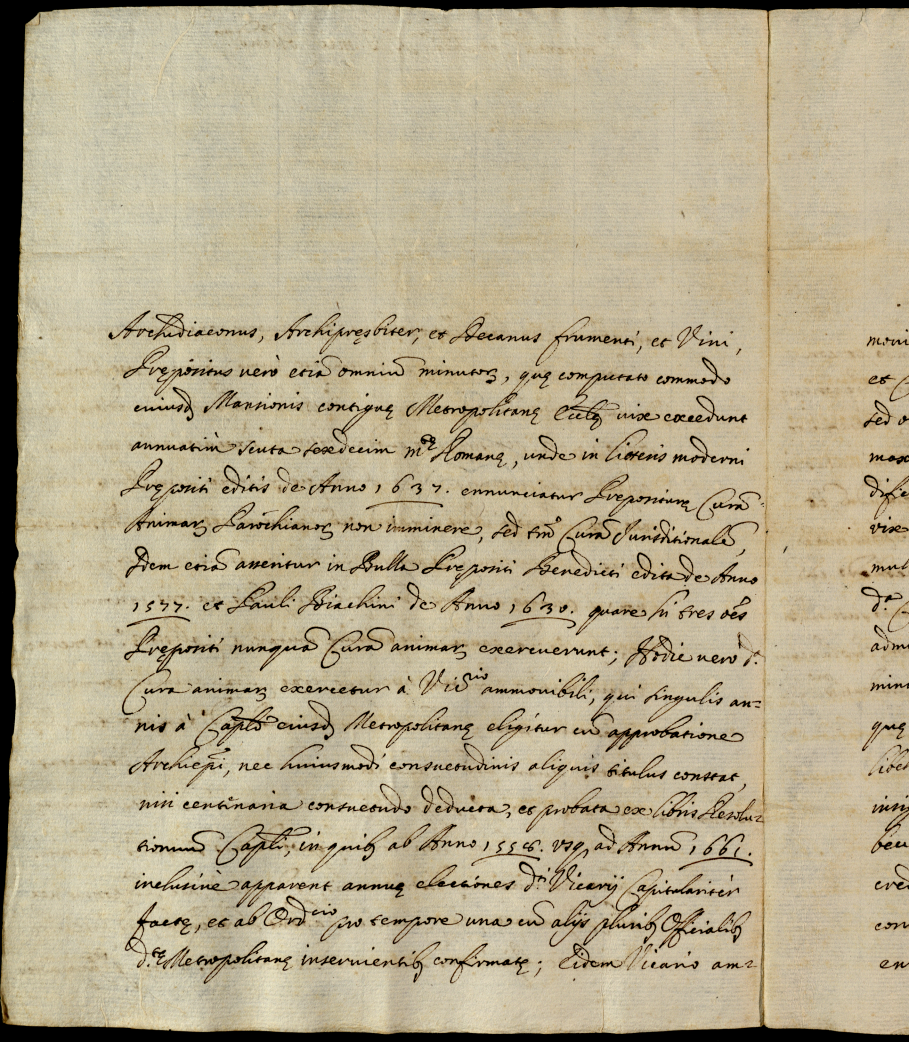 Archidiaconus, Archipręsbiter, et Decanus frumenti, et Vini,
Prępositus verò etiã omniũ minutorꝝ, quę computato commodo
cuiusdꝫ Mansionis contiguę Metropolitanę Ecclę vix excedunt
annuatim scuta sexdecim mtę Romanę, unde in literis moderni
Prępositi editis de Anno 1637. ennunciatur Pręposituręe Curã
Animarꝝ Parochianorꝝ non imminere, sed tm̃ Curã Jurisditionalẽ,
Idem etiã asseritur in Bulla Prępositi Benedicti edita de Anno
1577. et Pauli Biachini de Anno 1630. quare hi tres oẽs
Prępositi nunquã Curã animarꝝ exercuerunt; Hodie vero d.
Cura animarꝝ exercetur à Vicrio ammovibili, qui singulis an=
nis à Caplõ eiusdꝫ Metropolitanę eligitur cũ approbatione
Archiepi, nec huiusmodi consuetudinis aliquis titulus constat,
nisi centinaria consuetudo deducta, et probata ex libris Resolu=
tionum Capli, in quibꝫ ab Anno 1556. usqꝫ ad Annũ 1661.
inclusiuè apparent annuę electiones di Vicarij Capitularitèr
factę, et ab Ordrio pro tempore una cũ alijs pluribꝫ Officialibꝫ
dtę Metropolitanę inseruientibꝫ confirmatę; Eidem Vicario am=
moni
et C
sed o
max
dife
vix
mul
da C
admi
min
quę
libe
insi
cred
con
en